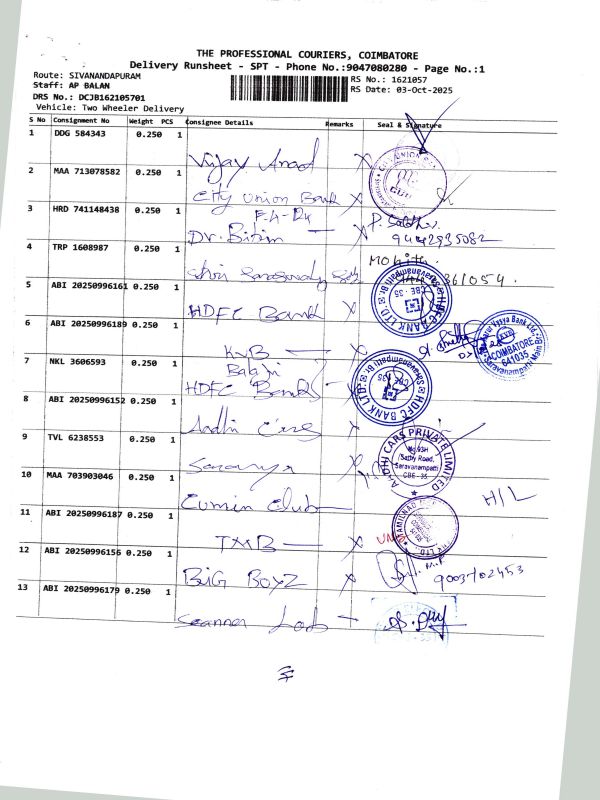 THE PROFESSIONAL COURIERS, COIMBATORE
Delivery Runsheet - SPT - Phone No.:9047080280 - Page No.:1
Route: SIVANANDAPURAM
Staff: AP BALAN
DRS No.: DCJB162105701
Vehicle: Two Wheeler Delivery
RS No.: 1621057
RS Date: 03-Oct-2025
S No Consignment No Weight PCS Consignee Details Remarks Seal & Signature
1 DDG 584343 0.250 1
Vijay Anad X
2 MAA 713078582 0.250 1
City Union Bank X
3 HRD 741148438 0.250 1
Dr. Bitim
9442935082
4 TRP 1608987 0.250 1
Mohith
Shri Saraswady
5 ABI 20250996161 0.250 1
HDFC Bank X
HDFC BANK LTD. Saravanampatti Br. CBE-35
6 ABI 20250996189 0.250 1
KVB X
Vysya Bank Ltd. COIMBATORE 641035 Saravanampatti
7 NKL 3606593 0.250 1
Balaji
HDFC Bank
HDFC BANK LTD. Saravanampatti Br. CBE 35
8 ABI 20250996152 0.250 1
Aadhi Cars X
9 TVL 6238553 0.250 1
Saranya
AADHI CARS PRIVATE LIMITED No.93H Sathy Road, Saravanampatti CBE-35
10 MAA 703903046 0.250 1
Cumin Club
H/L
11 ABI 20250996187 0.250 1
TMB X
12 ABI 20250996156 0.250 1
BIG BOYZ X
9003702453
13 ABI 20250996179 0.250 1
Scanner Lab